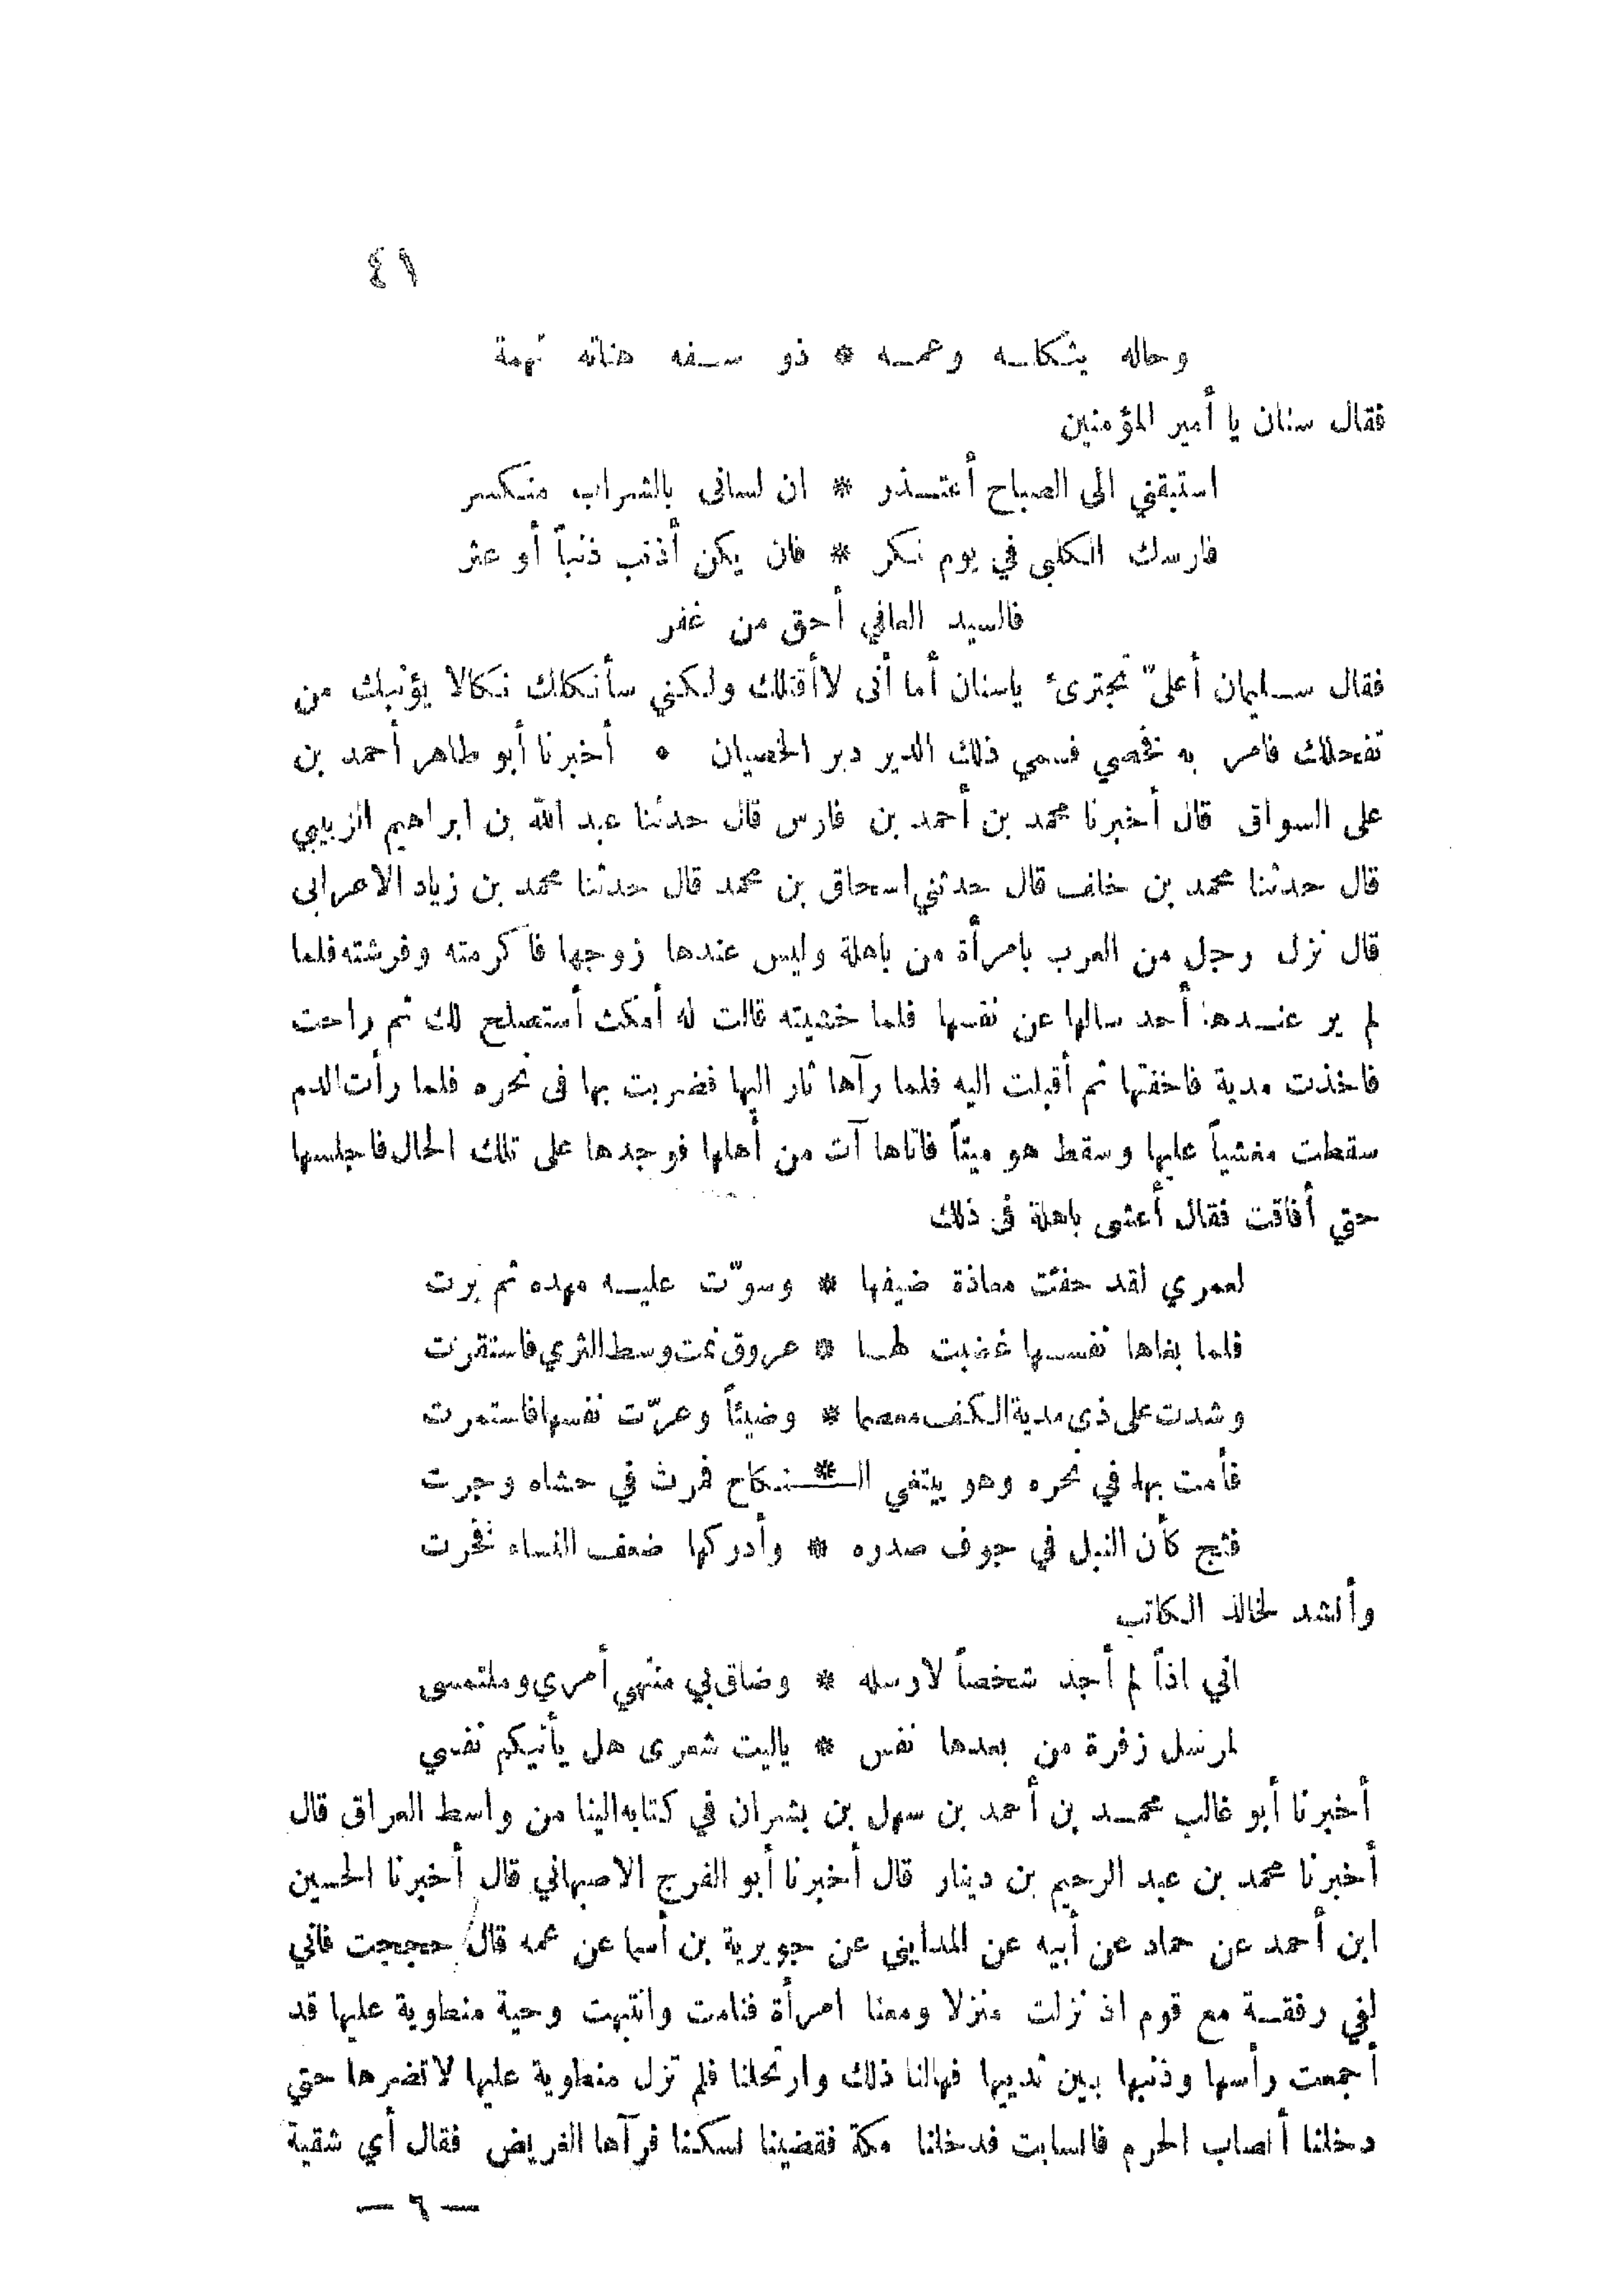 ٤١
وحاله يثكله وعمه * ذو سفه هناته تهمة
فقال سنان يا أمير المؤمنين
استبقني الى الصباح أعتذر * ان لسانى بالشراب منكسر
فارسك الكلبى في يوم نكر * فان يكن أذنب ذنباً أو عثر
فالسيد العافي أحق من غفر
فقال سليمان أعلىّ تجترئ ياسنان أما أنى لاأقتلك ولكني سأنكلك نكالا يؤنبك من
تفحلك فامر به فخصي فسمي ذلك الدير دير الخصيان ٠ أخبرنا أبو طاهر أحمد بن
على السواق قال أخبرنا محمد بن أحمد بن فارس قال حدثنا عبد الله بن ابراهيم الزبيبي
قال حدثنا محمد بن خلف قال حدثني اسحاق بن محمد قال حدثنا محمد بن زياد الاعرابى
قال نزل رجل من العرب بامرأة من باهلة وليس عندها زوجها فاكرمته وفرشته فلما
لم ير عندها أحد سالها عن نفسها فلما خشيته قالت له أمكث أستصلح لك ثم راحت
فاخذت مدية فاخفتها ثم أقبلت اليه فلما رآها ثار اليها فضربت بها فى نحره فلما رأت الدم
سقطت مغشياً عليها وسقط هو ميتاً فاتاها آت من أهلها فوجدها على تلك الحال فاجلسها
حتي أفاقت فقال أعشى باهلة فى ذلك
لعمري لقد حفت معاذة ضيفها * وسوّت عليه مهده ثم برت
فلما بغاها نفسها غضبت لها * عروق نمت وسط الثري فاستقرت
وشدت على ذى مدية الكف معصما * وضيئاً وعرّت نفسها فاستمرت
فأمت بها في نحره وهو يبتغي الـ * ـنكاح فمرت في حشاه وجرت
فثج كأن النبل في جوف صدره * وأدركها ضعف النساء فخرت
وأنشد لخالد الكاتب
اني اذاً لم أجد شخصاً لارسله * وضاق بي منتهي أمري وملتمسى
لمرسل زفرة من بعدها نفس * ياليت شعرى هل يأتيكم نفسي
أخبرنا أبو غالب محمد بن أحمد بن سهل بن بشران في كتابه الينا من واسط العراق قال
أخبرنا محمد بن عبد الرحيم بن دينار قال أخبرنا أبو الفرج الاصبهاني قال أخبرنا الحسين
ابن أحمد عن حماد عن أبيه عن المدايني عن جويرية بن أسما عن عمه قال حججت فاني
لفي رفقة مع قوم اذ نزلت منزلا ومعنا امرأة فنامت وانتبهت وحية منطوية عليها قد
أجمعت رأسها وذنبها بين ثدييها فهالنا ذلك وارتحلنا فلم تزل منطوية عليها لاتضرها حتي
دخلنا أنصاب الحرم فانسابت فدخلنا مكة فقضينا نسكنا فرآها الغريض فقال أي شقية
— ٦ —